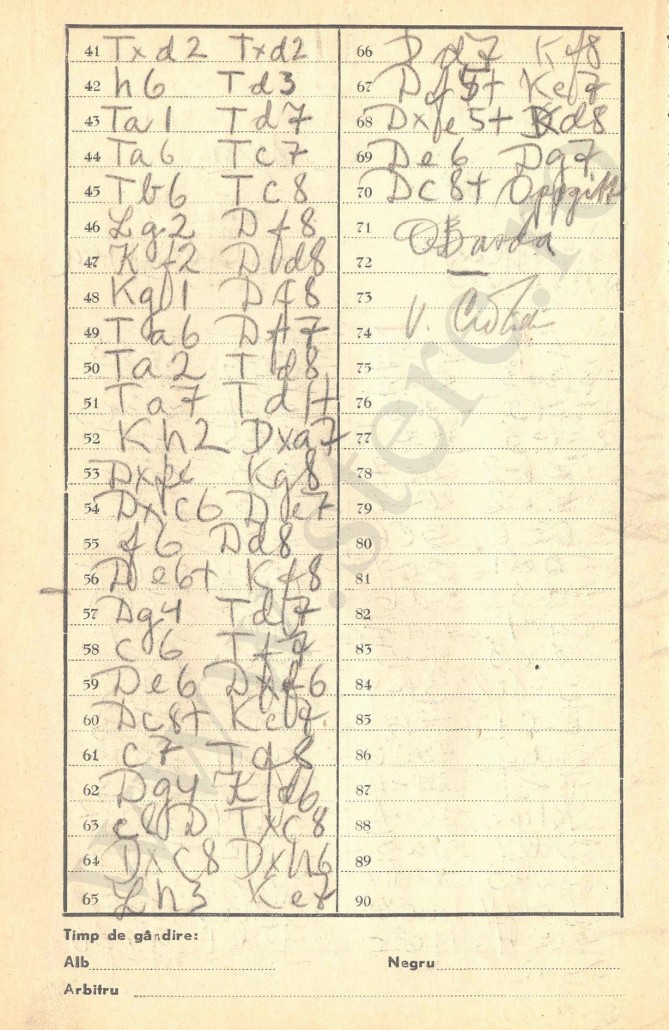 41 Txd2 Txd2
42 h6 Td3
43 Ta1 Td7
44 Ta6 Tc7
45 Tb6 Tc8
46 Lg2 Df8
47 Kf2 Dd8
48 Kg1 Df8
49 Ta6 Df7
50 Ta2 Td8
51 Ta7 Td1+
52 Kh2 Dxa7
53 Kg8
54 Dxc6 De7
55 f6 Dd8
56 De6+ Kf8
57 Dg4 Td7
58 c6 Tf7
59 De6 Dxf6
60 Dc8+ Ke7
61 c7 Tf8
62 Dg4 Kd6
63 c8D Txc8
64 Dxc8 Dxh6
65 Lh3 Ke7
66 Dd7 Kf8
67 Df5+ Ke7
68 Dxe5+ Kd8
69 De6 Dg7
70 Dc8+ Oppgitt
71 OBarda
72
73
74 V. Ciocîltea
75
76
77
78
79
80
81
82
83
84
85
86
87
88
89
90
Timp de gândire:
Alb
Negru
Arbitru